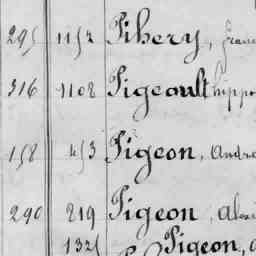 295 1152 Pihery, franc
316 1108 Pigeault hippo
158 453 Pigeon, Andre
290 219 Pigeon, Alexi
1325 Pigeon, a